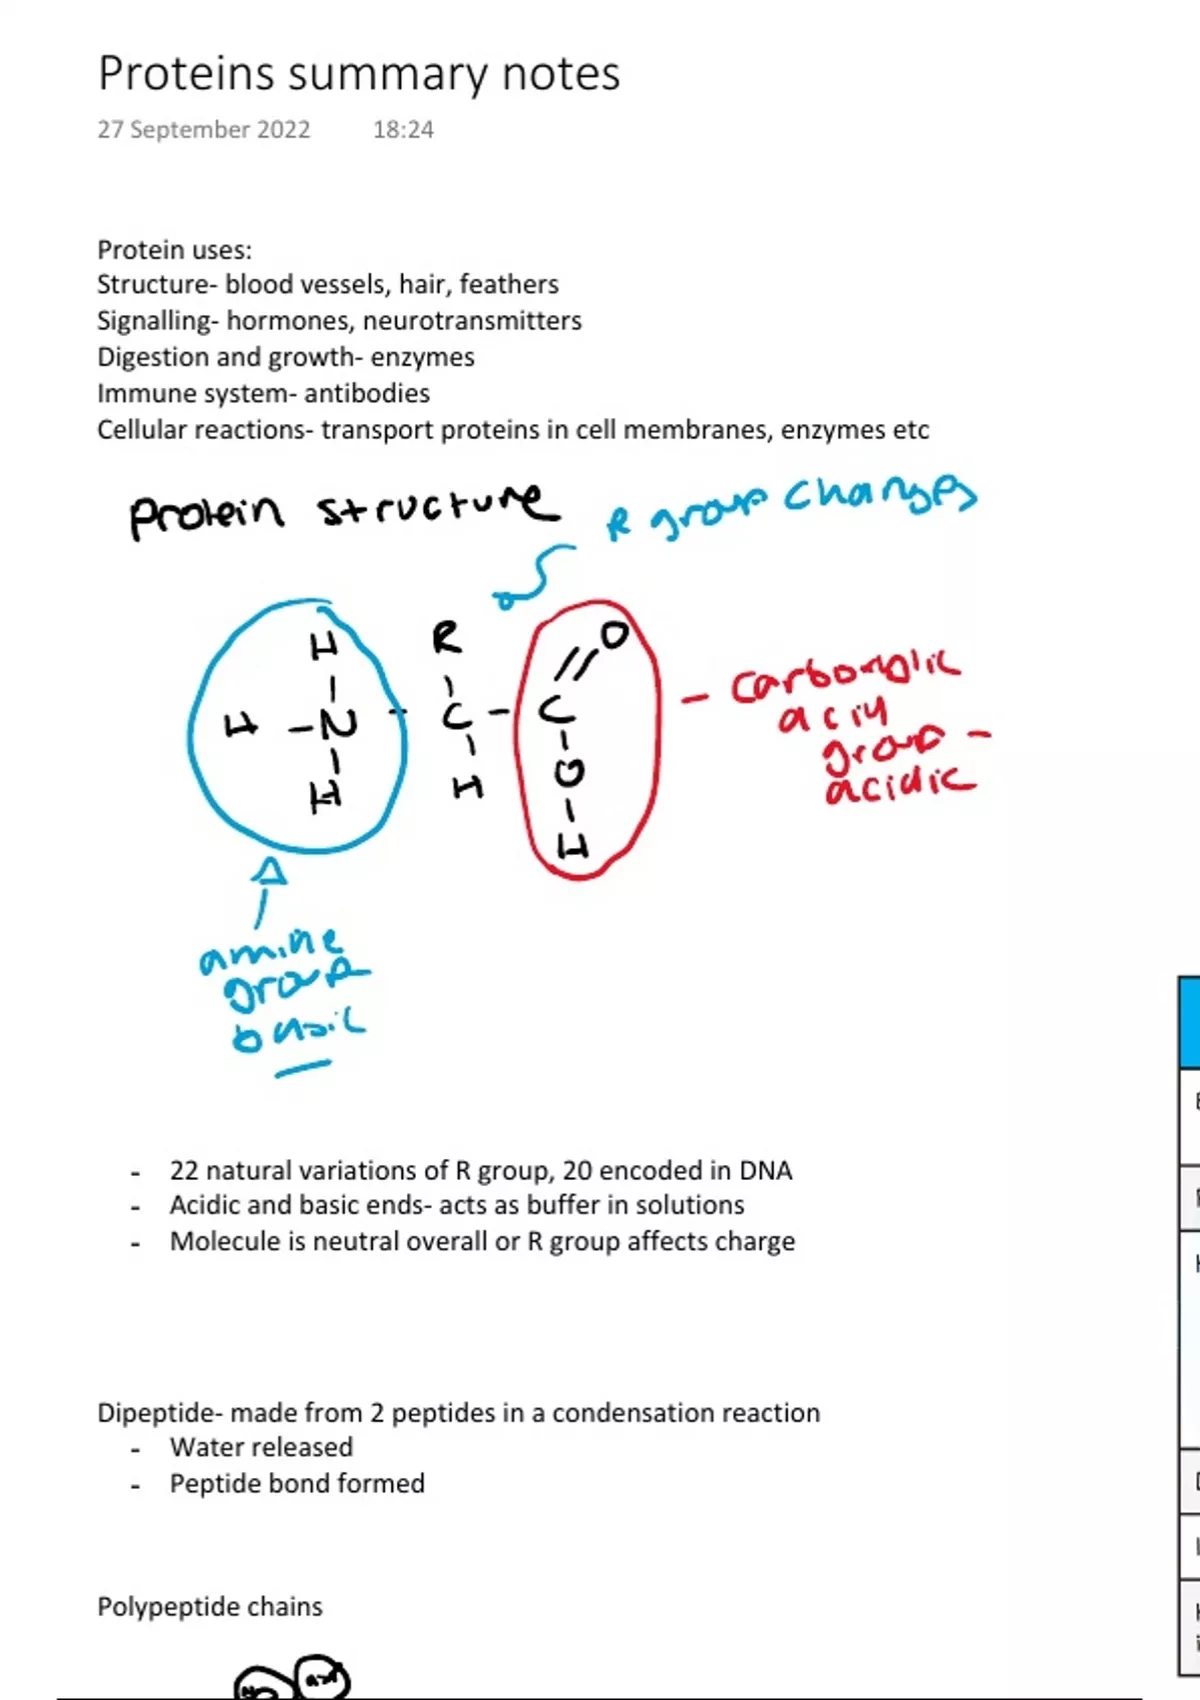 Proteins summary notes
27 September 2022 18:24
Protein uses:
Structure- blood vessels, hair, feathers
Signalling- hormones, neurotransmitters
Digestion and growth- enzymes
Immune system- antibodies
Cellular reactions- transport proteins in cell membranes, enzymes etc
Protein structure
R group changes
H R O
H - N - C - C
H H O
H
- carboxylic
acid
group -
acidic
amine
group
basic
- 22 natural variations of R group, 20 encoded in DNA
- Acidic and basic ends- acts as buffer in solutions
- Molecule is neutral overall or R group affects charge
Dipeptide- made from 2 peptides in a condensation reaction
- Water released
- Peptide bond formed
Polypeptide chains